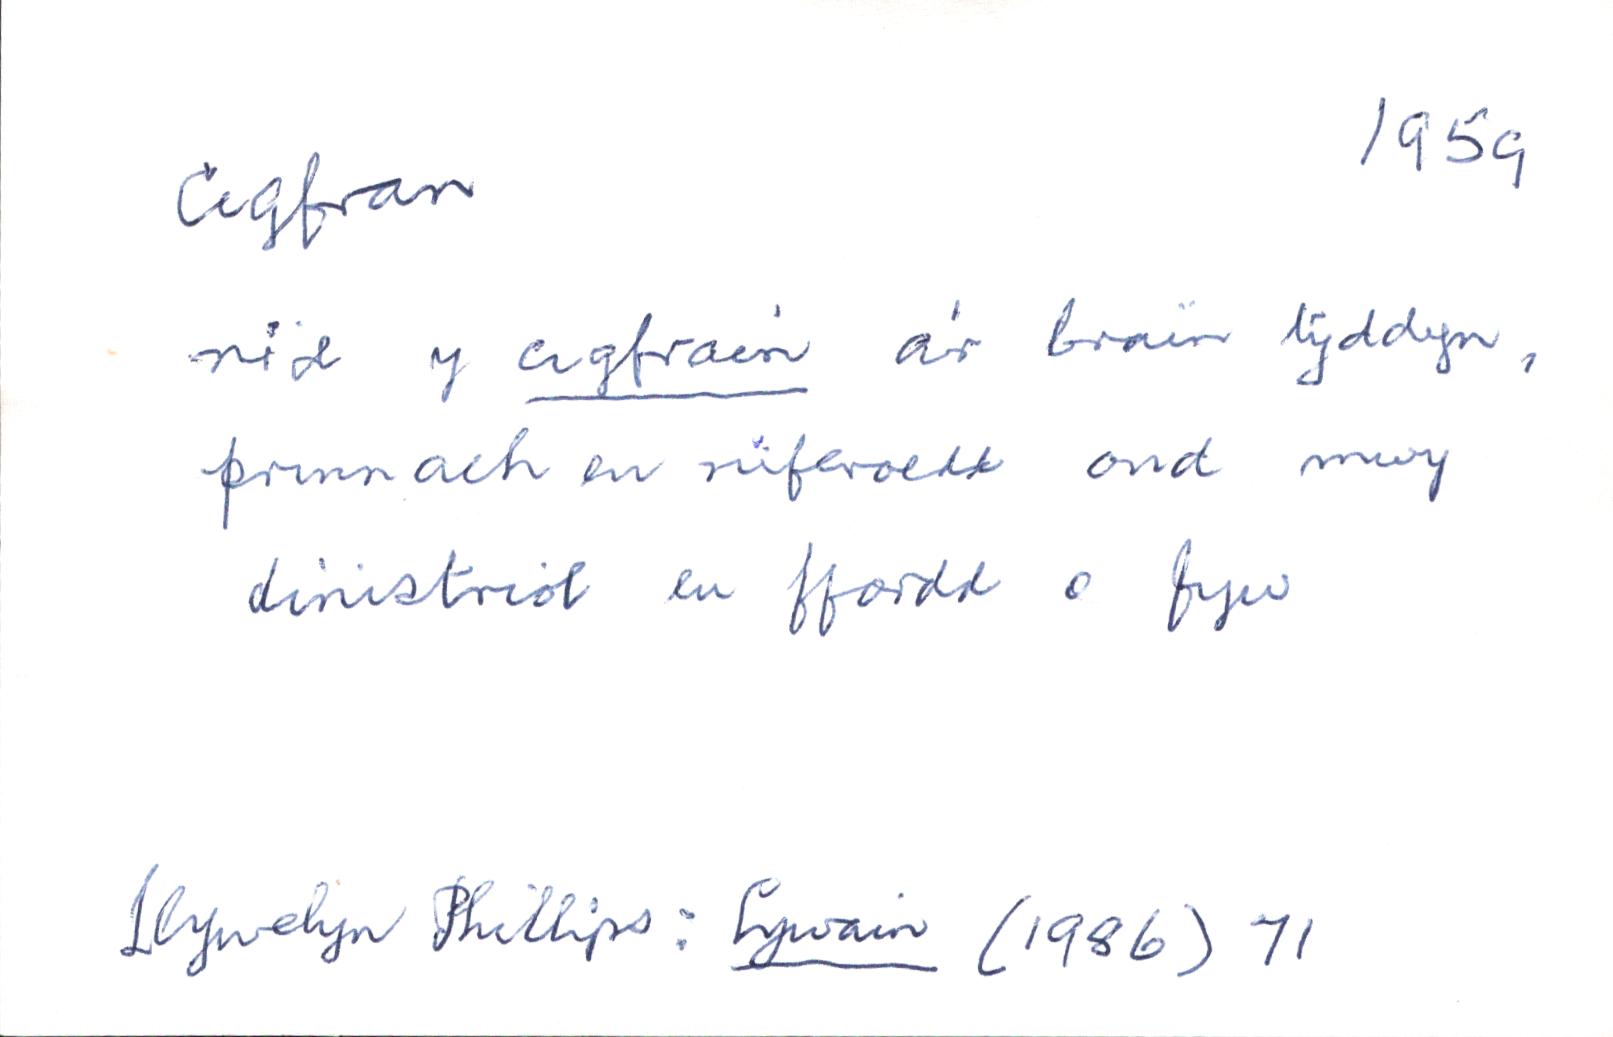 1959
Cigfran
nid y cigfrain a'r brain tyddyn,
prinnach eu niferoedd ond mwy
dinistriol eu ffordd o fyw
Llywelyn Phillips: Hywain (1986) 71